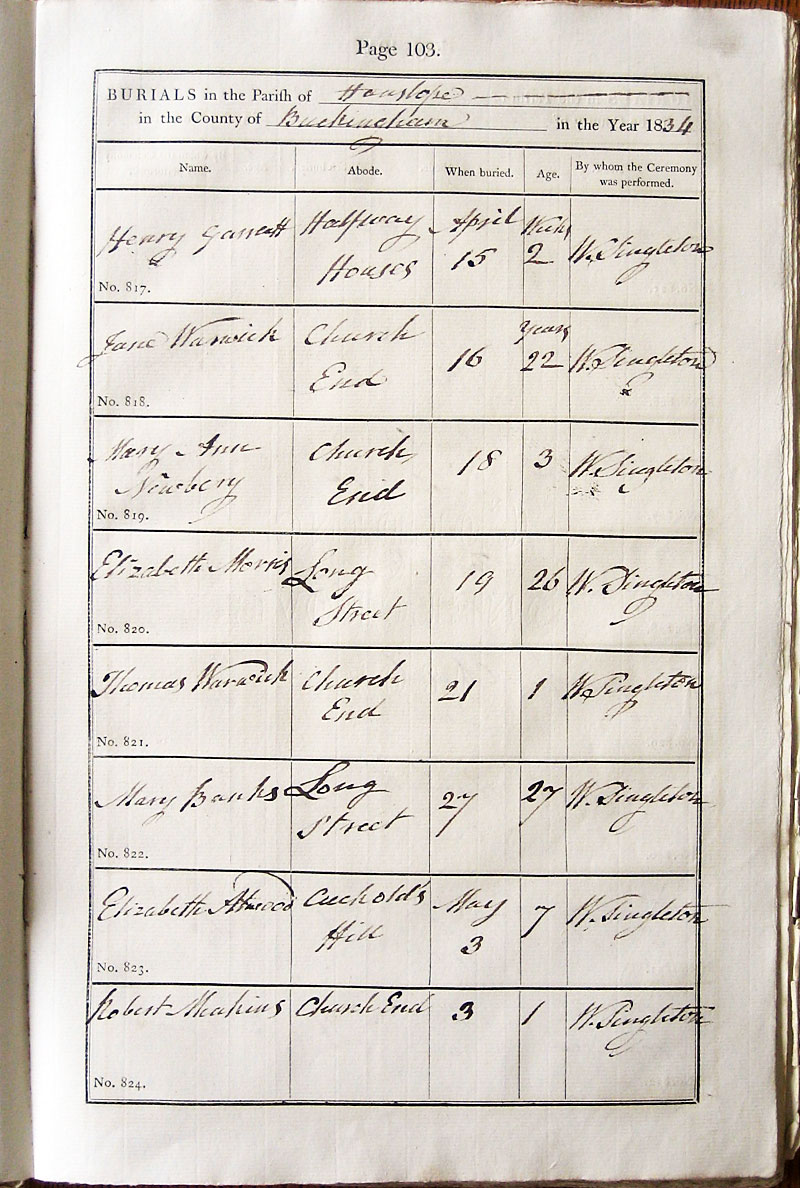 Page 103.
BURIALS in the Parish of Hanslope
in the County of Buckingham in the Year 1834
Name. Abode. When buried. Age. By whom the Ceremony was performed.
Henry Garratt Halfway Houses April 15 Weeks 2 W. Singleton
No. 817.
Jane Warwick Church End 16 Years 22 W. Singleton
No. 818.
Mary Ann Newbery Church End 18 3 W. Singleton
No. 819.
Elizabeth Morris Long Street 19 26 W. Singleton
No. 820.
Thomas Warwick Church End 21 1 W. Singleton
No. 821.
Mary Banks Long Street 27 27 W. Singleton
No. 822.
Elizabeth Atwood Cuckold's Hill May 3 7 W. Singleton
No. 823.
Robert Meakins Church End 3 1 W. Singleton
No. 824.